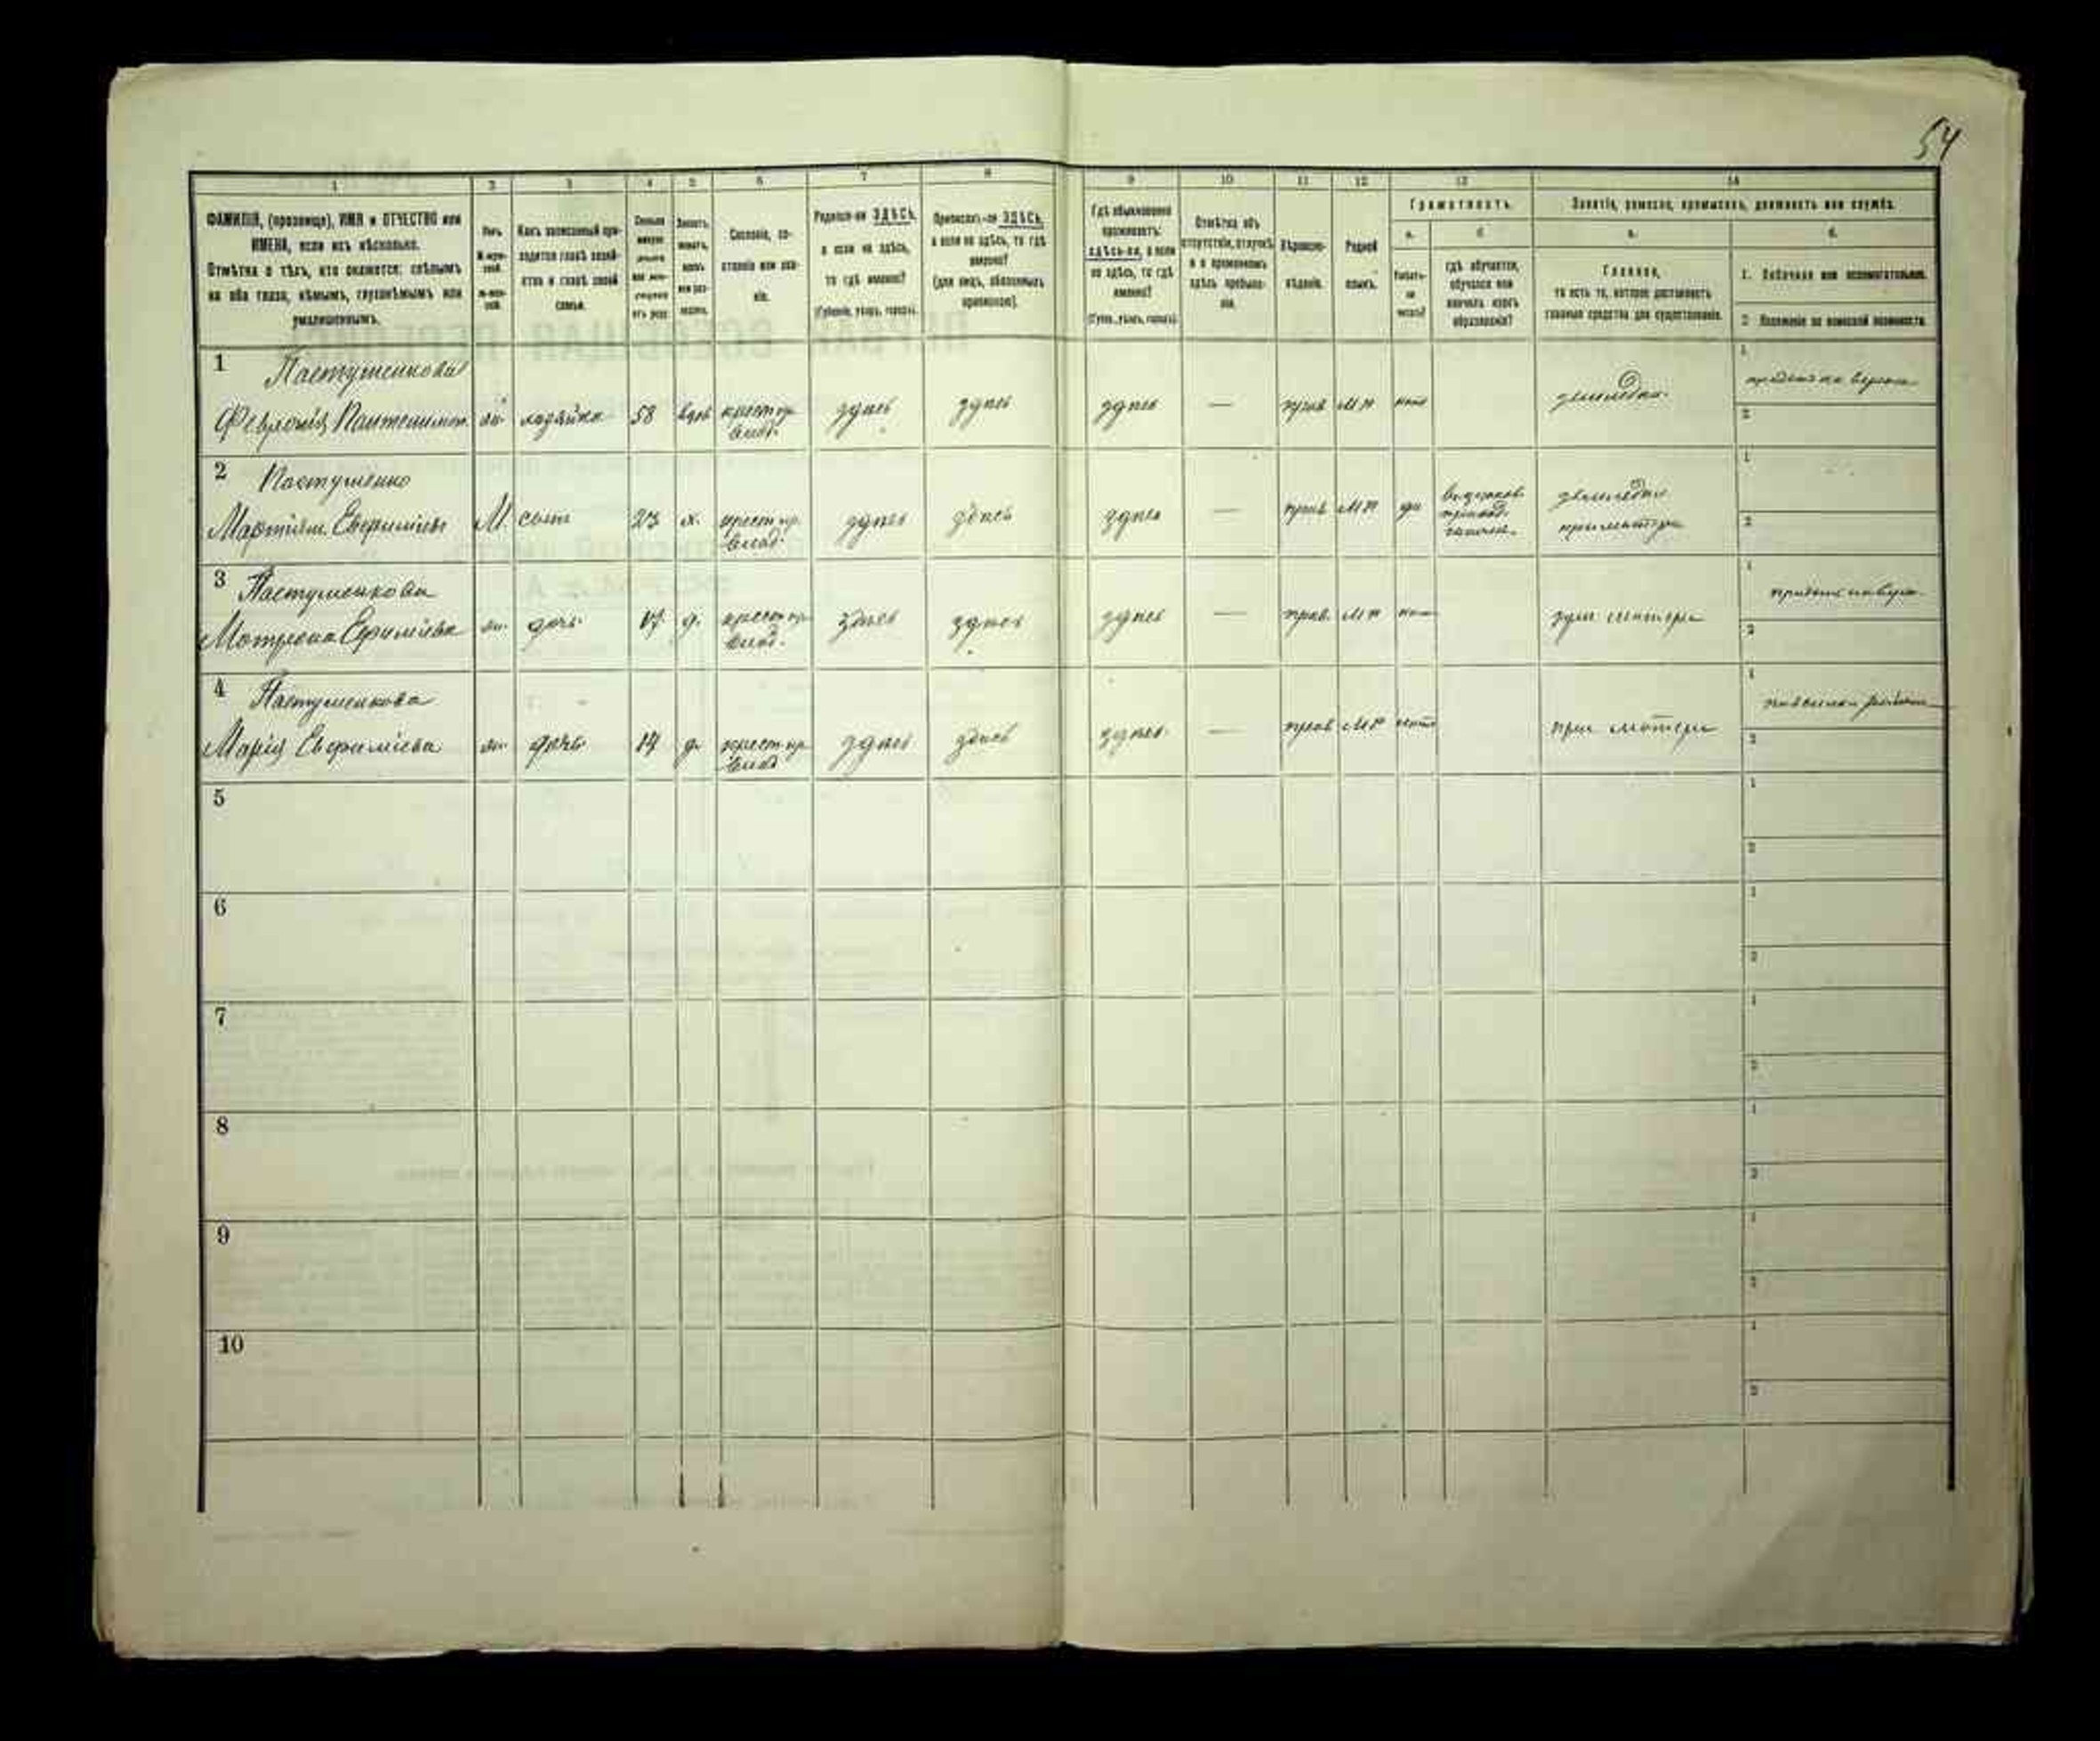 54
1
2
3
4
5
6
7
8
9
10
11
12
13
14
ФАМИЛІЯ, (прозвище), ИМЯ и ОТЧЕСТВО или
ИМЕНА, если ихъ нѣсколько.
Отмѣтка о тѣхъ, кто окажется: слѣпымъ
на оба глаза, нѣмымъ, глухонѣмымъ или
умалишеннымъ.
Полъ.
Какъ записанный при-
ходится главѣ хозяй-
ства и главѣ своей
семьи.
Сословіе, со-
стояніе или зва-
ніе.
Родился-ли ЗДѢСЬ,
а если не здѣсь,
то гдѣ именно?
(Губернія, уѣздъ, городъ).
Приписанъ-ли ЗДѢСЬ,
а если не здѣсь, то гдѣ
именно?
(для лицъ, обязанныхъ
припискою).
Гдѣ обыкновенно
проживаетъ:
здѣсь-ли, а если
не здѣсь, то гдѣ
именно?
(Губ., уѣздъ, городъ).
Отмѣтка объ
отсутствіи, отлучкѣ
и о временномъ
здѣсь пребыва-
ніи.
Вѣроиспо-
вѣданіе.
Родной
языкъ.
Грамотность.
а.
б.
Умѣетъ-
ли
читать?
гдѣ обучается,
обучался или
кончилъ курсъ
образованія?
Занятіе, ремесло, промыселъ, должность или служба.
а.
б.
Главное,
то есть то, которое доставляетъ
главныя средства для существованія.
1. Побочное или вспомогательное.
2. Положеніе по воинской повинности.
1 Пастушенкова
Февронія Пантелимон. ж. хозяйка 58 вдов крест. пр. здѣсь здѣсь здѣсь — прав МР нет землед.
влад.
2 Пастушенко
Мартиян Евфиміев М. сын 23 х. крест. пр. здѣсь здѣсь здѣсь — прав МР да землед.
влад. при матери
3 Пастушенкова
Мотрона Евфиміева ж. дочь 17 д. крест. пр. здѣсь здѣсь здѣсь — прав. МР нет при матери
влад.
4 Пастушенкова
Марія Евфиміева ж. дочь 14 д. крест. пр. здѣсь здѣсь здѣсь — прав МР нет при матери
влад.
5
6
7
8
9
10